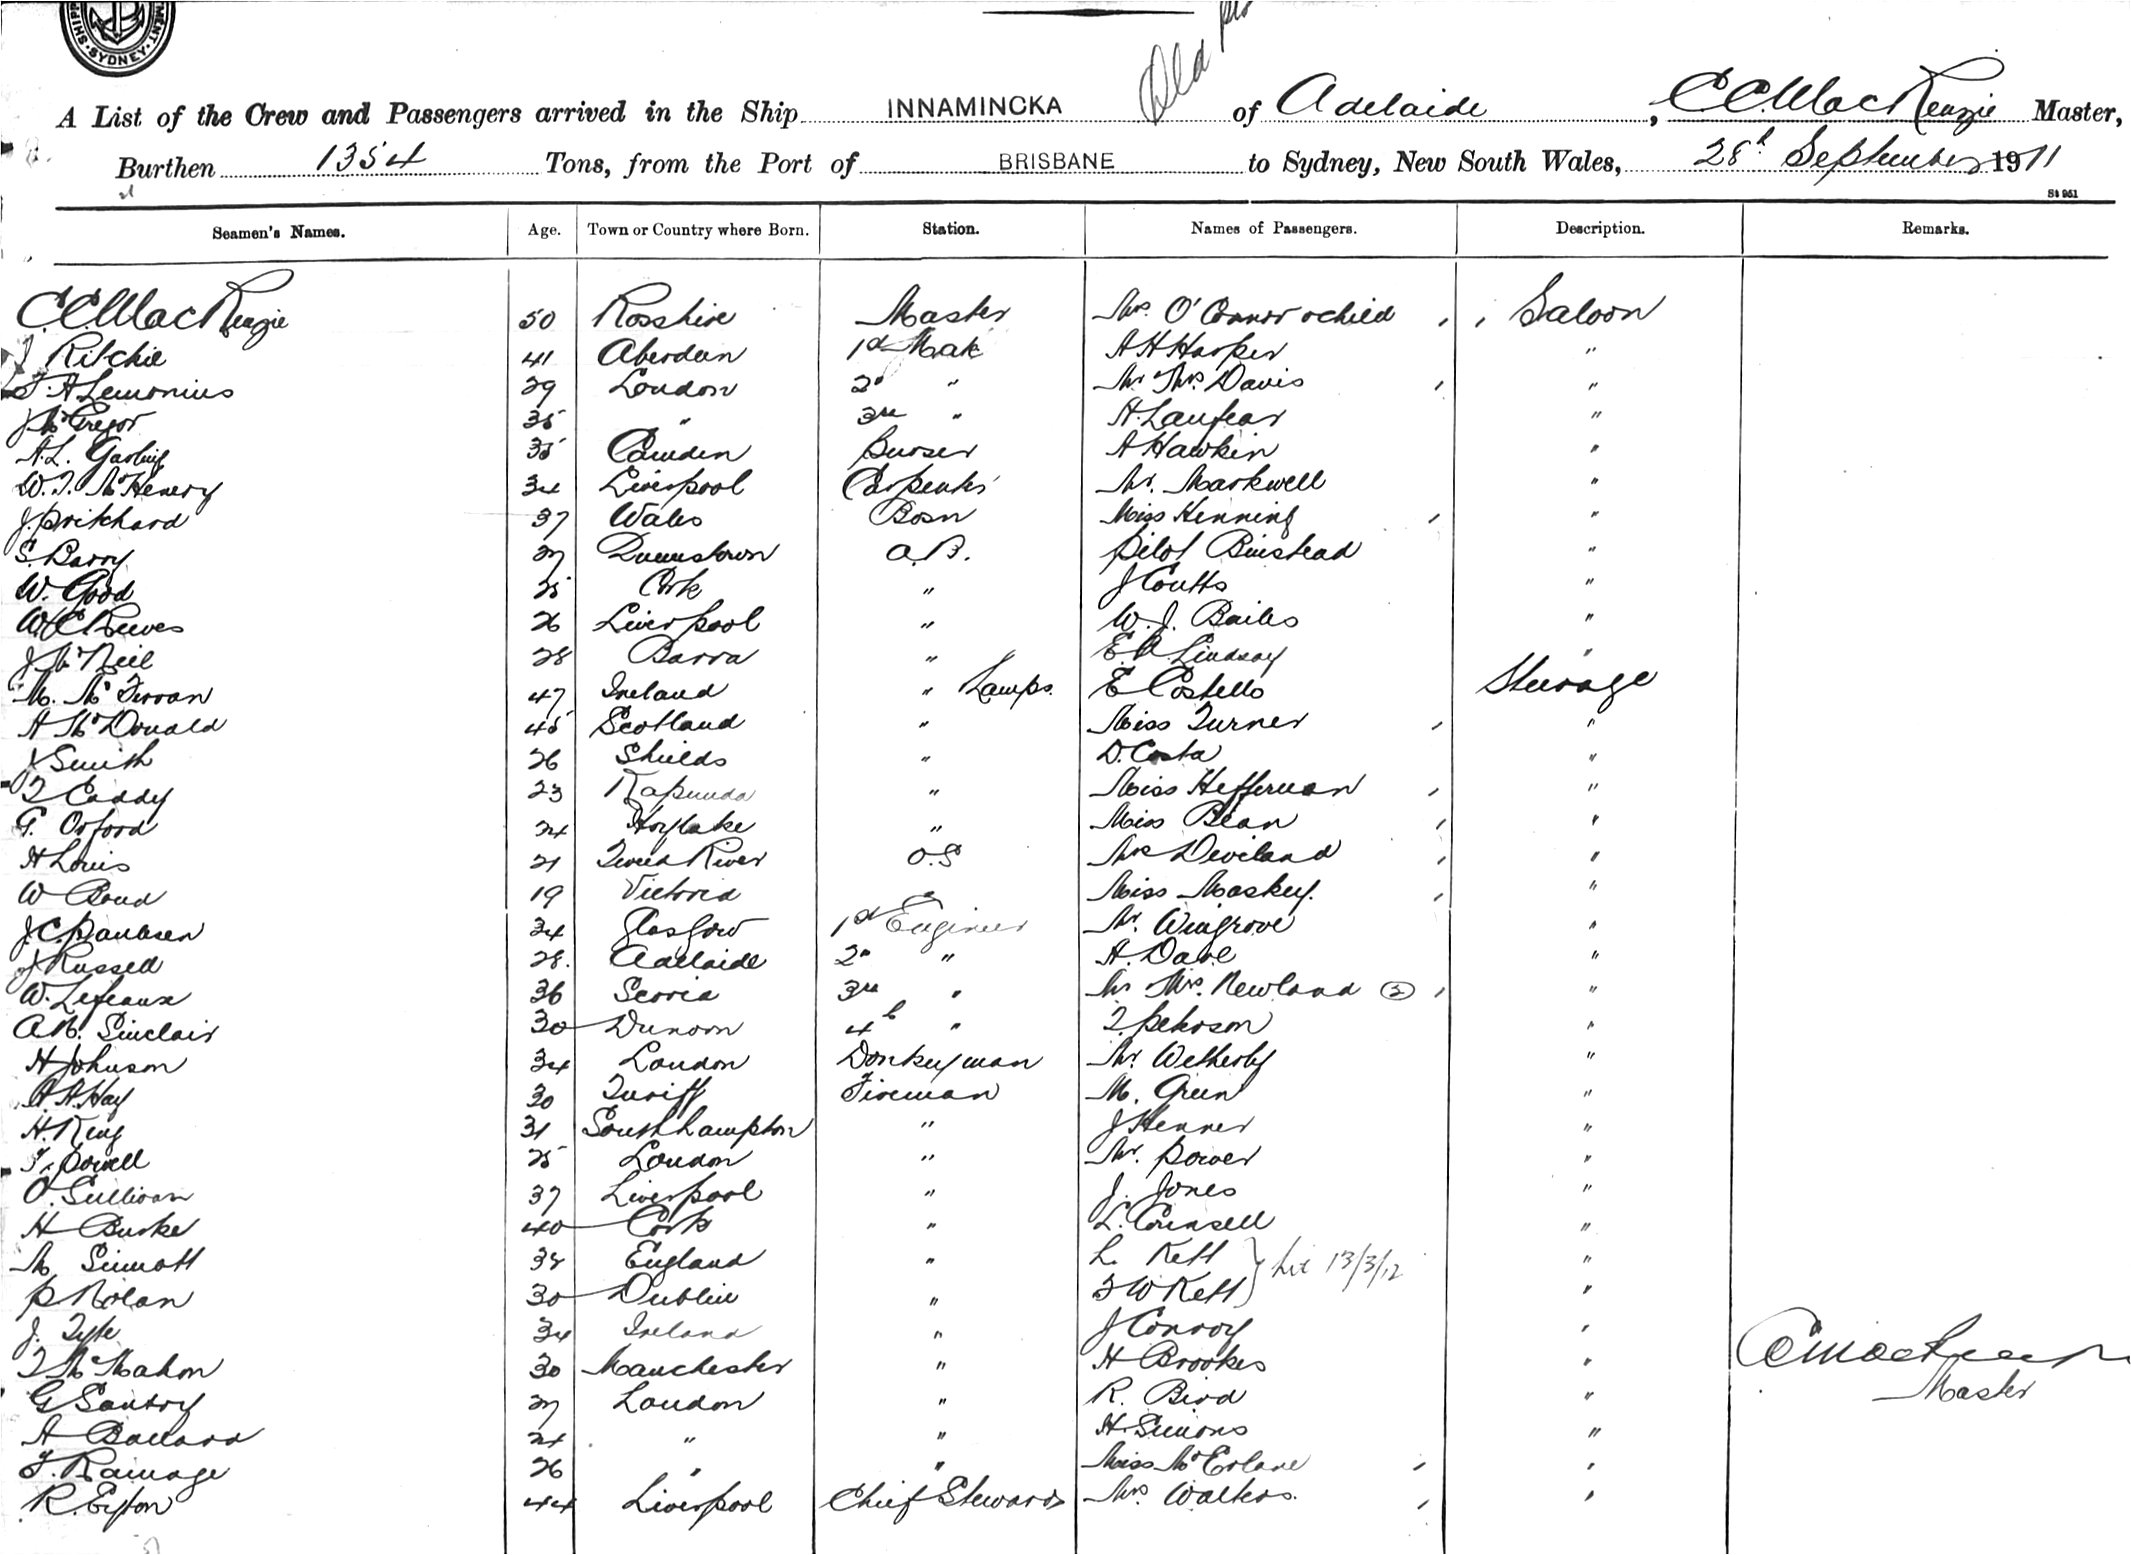 SHIPPI · SYDNEY · MENT
Old
A List of the Crew and Passengers arrived in the Ship INNAMINCKA of Adelaide, C C MacKenzie Master,
Burthen 1354 Tons, from the Port of BRISBANE to Sydney, New South Wales, 28th September 1911
St 951
Seamen's Names. Age. Town or Country where Born. Station. Names of Passengers. Description. Remarks.
C.C. MacKenzie 50 Rosshire Master Mrs. O'Connor & child Saloon
J Ritchie 41 Aberdeen 1st Mate A H Harper "
F. A Lemonius 29 London 2d " Mr Mrs Davis "
J McGregor 35 " 3rd " H. Lanfear "
A.L. Garling 35 Camden Purser A Hawkin "
W. T. McHenery 34 Liverpool Carpenter Mr. Markwell "
J. Pritchard 37 Wales Bosn Miss Henning "
S. Barry 27 Queenstown A.B. Pilot Binstead "
W. Good 25 Cork " J Coutts "
W C Reeves 26 Liverpool " W. J. Bailes "
J McNeil 28 Barra " E. A. Lindsay "
M. McFerran 47 Ireland " Lamps. E Costello Steerage
A McDonald 45 Scotland " Miss Turner "
J Smith 26 Shields " D. Costa "
T Caddy 23 Kapunda " Miss Heffernan "
G. Orford 24 Hoylake " Miss Bean "
H Louis 21 Tweed River O.S Mrs Deviland "
W Bond 19 Victoria " Miss Maskey. "
J. C. Paulsen 34 Glasgow 1st Engineer Mr. Wingrove "
J Russell 28. Adelaide 2d " A. Dave "
W. Lefeaux 36 3rd " Mr Mrs. Newland (2) "
A M. Sinclair 30 Dunoon 4th " T. Peterson "
H Johnson 34 London Donkeyman Mr Wetherby "
A. H. Hay 30 Turiff Fireman M. Green "
H. King 31 Southhampton " J Henner "
F. Powell 25 London " Mr. Power "
O. Sullivan 37 Liverpool " J. Jones "
H Burke 40 Cork " L. Counsell "
M Sinnott 38 England " L. Kett "
13/3/12
P Nolan 30 Dublin " F W Kett "
J. Tyte 34 Ireland " J Conroy "
T McMahon 30 Manchester " H Brookes "
G Santry 27 London " R. Bird "
A Ballard 24 " " H. Simons "
F. Ramage 26 " " Miss McErlane "
R. Eyton 44 Liverpool Chief Steward Mrs Walters. "
C C MacKenzie
Master